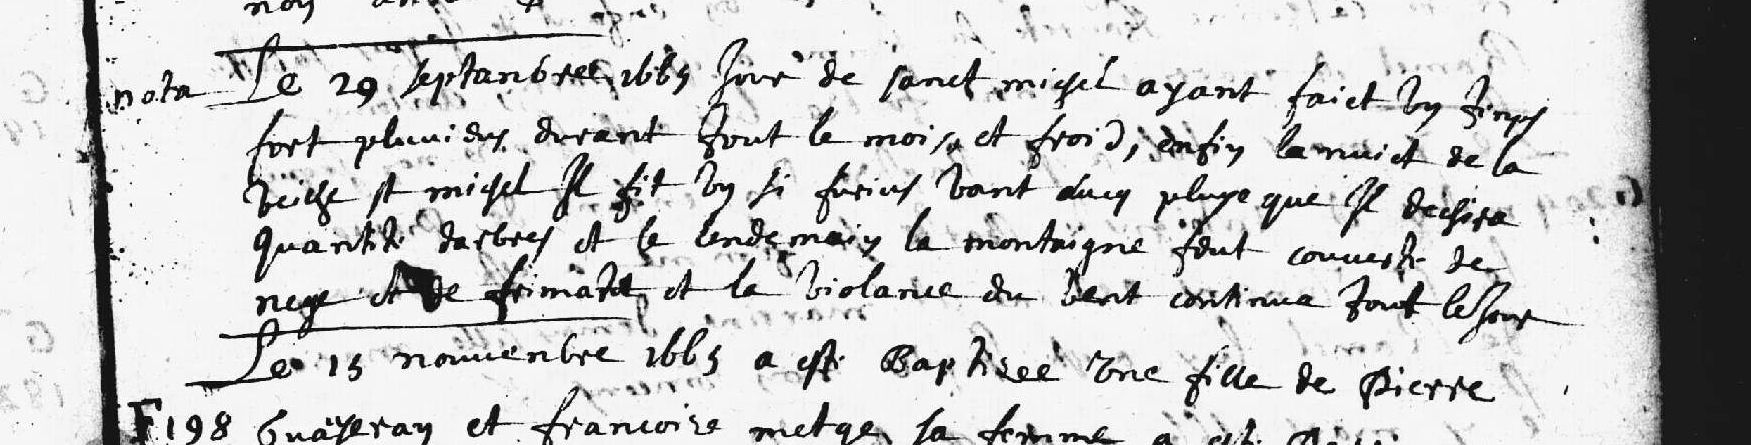 nota Le 29 septanbree 1665 Jour de sanct michel ayant faict vn temps
fort pluuieus durant tout le mois, et froid, enfin la nuict de la
veilhe st michel Il fit vn si furieus vant aucq pluye que Il dechira
quantité darbres et le lendemain la montaigne feut couuerte de
nege et de frimatz et la violance du vent continua tout le Jour
Le 15 nouuenbre 1665 a esté Baptisée vne fille de Pierre
F 198 et francoise metge sa femme a esté